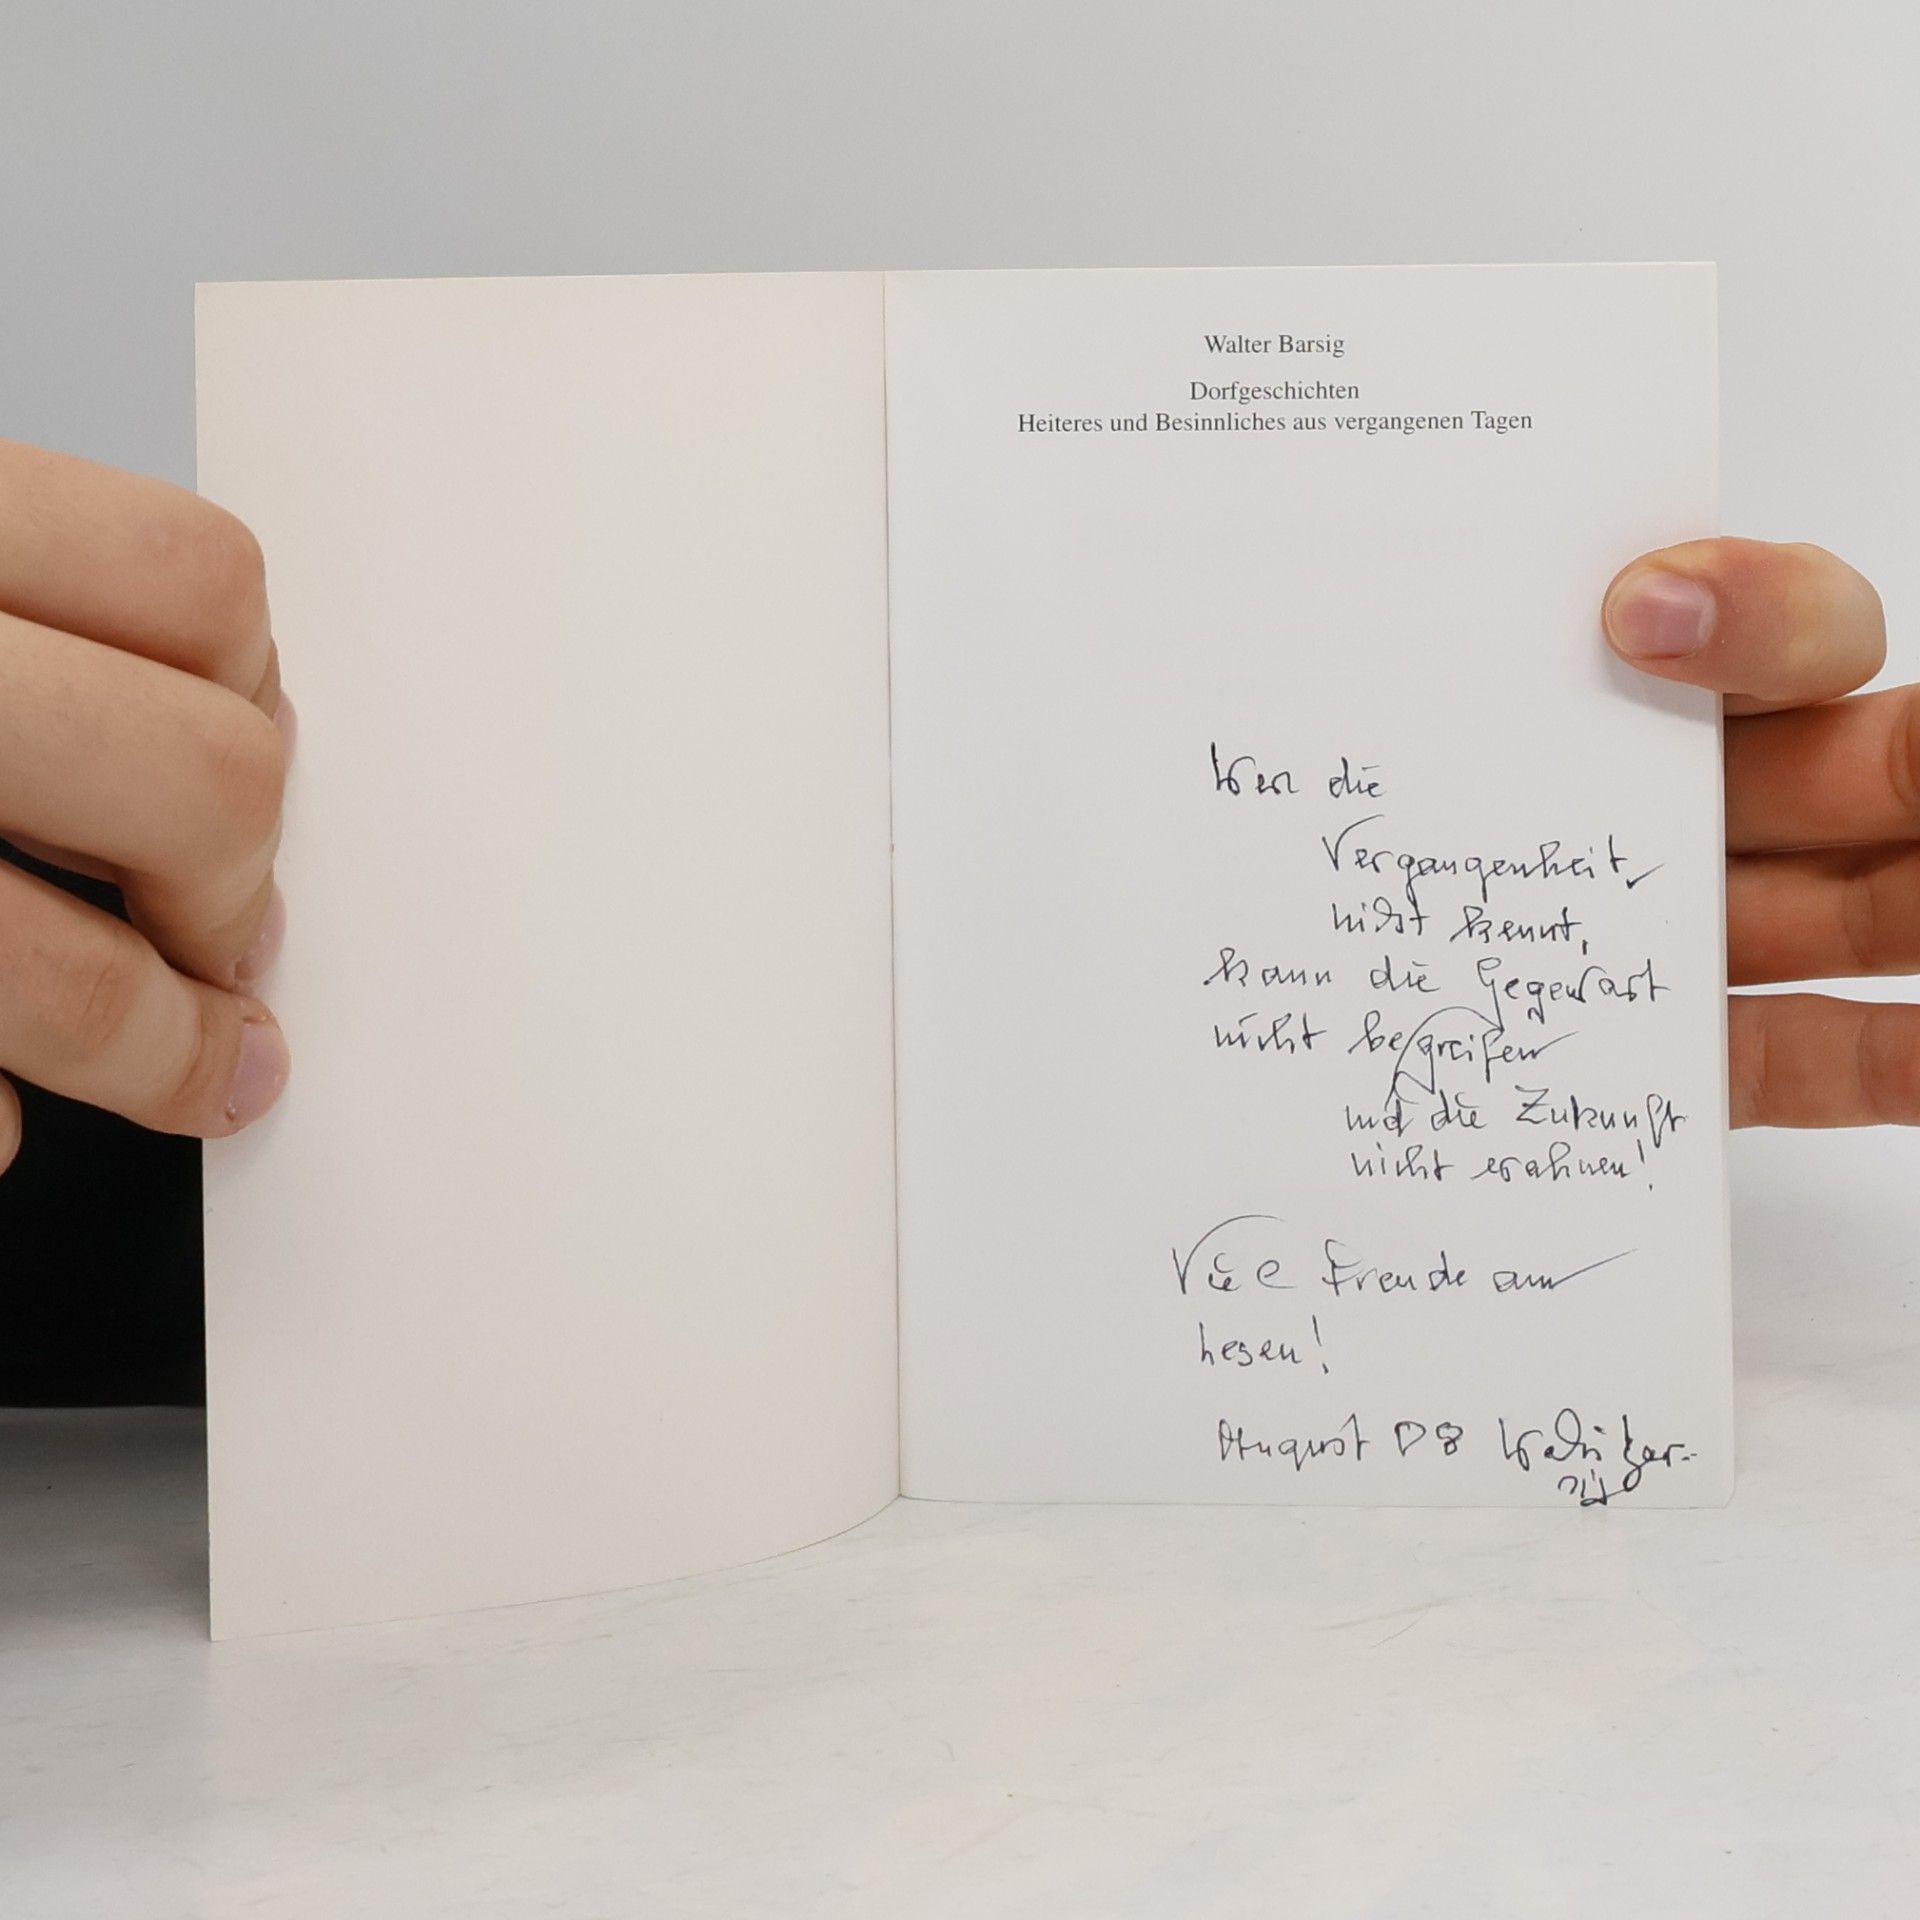 Walter Barsig
Dorfgeschichten
Heiteres und Besinnliches aus vergangenen Tagen
Wer die
Vergangenheit
nicht kennt,
kann die Gegenwart
nicht begreifen
und die Zukunft
nicht erahnen!
Viel Freude am
Lesen!
August 08